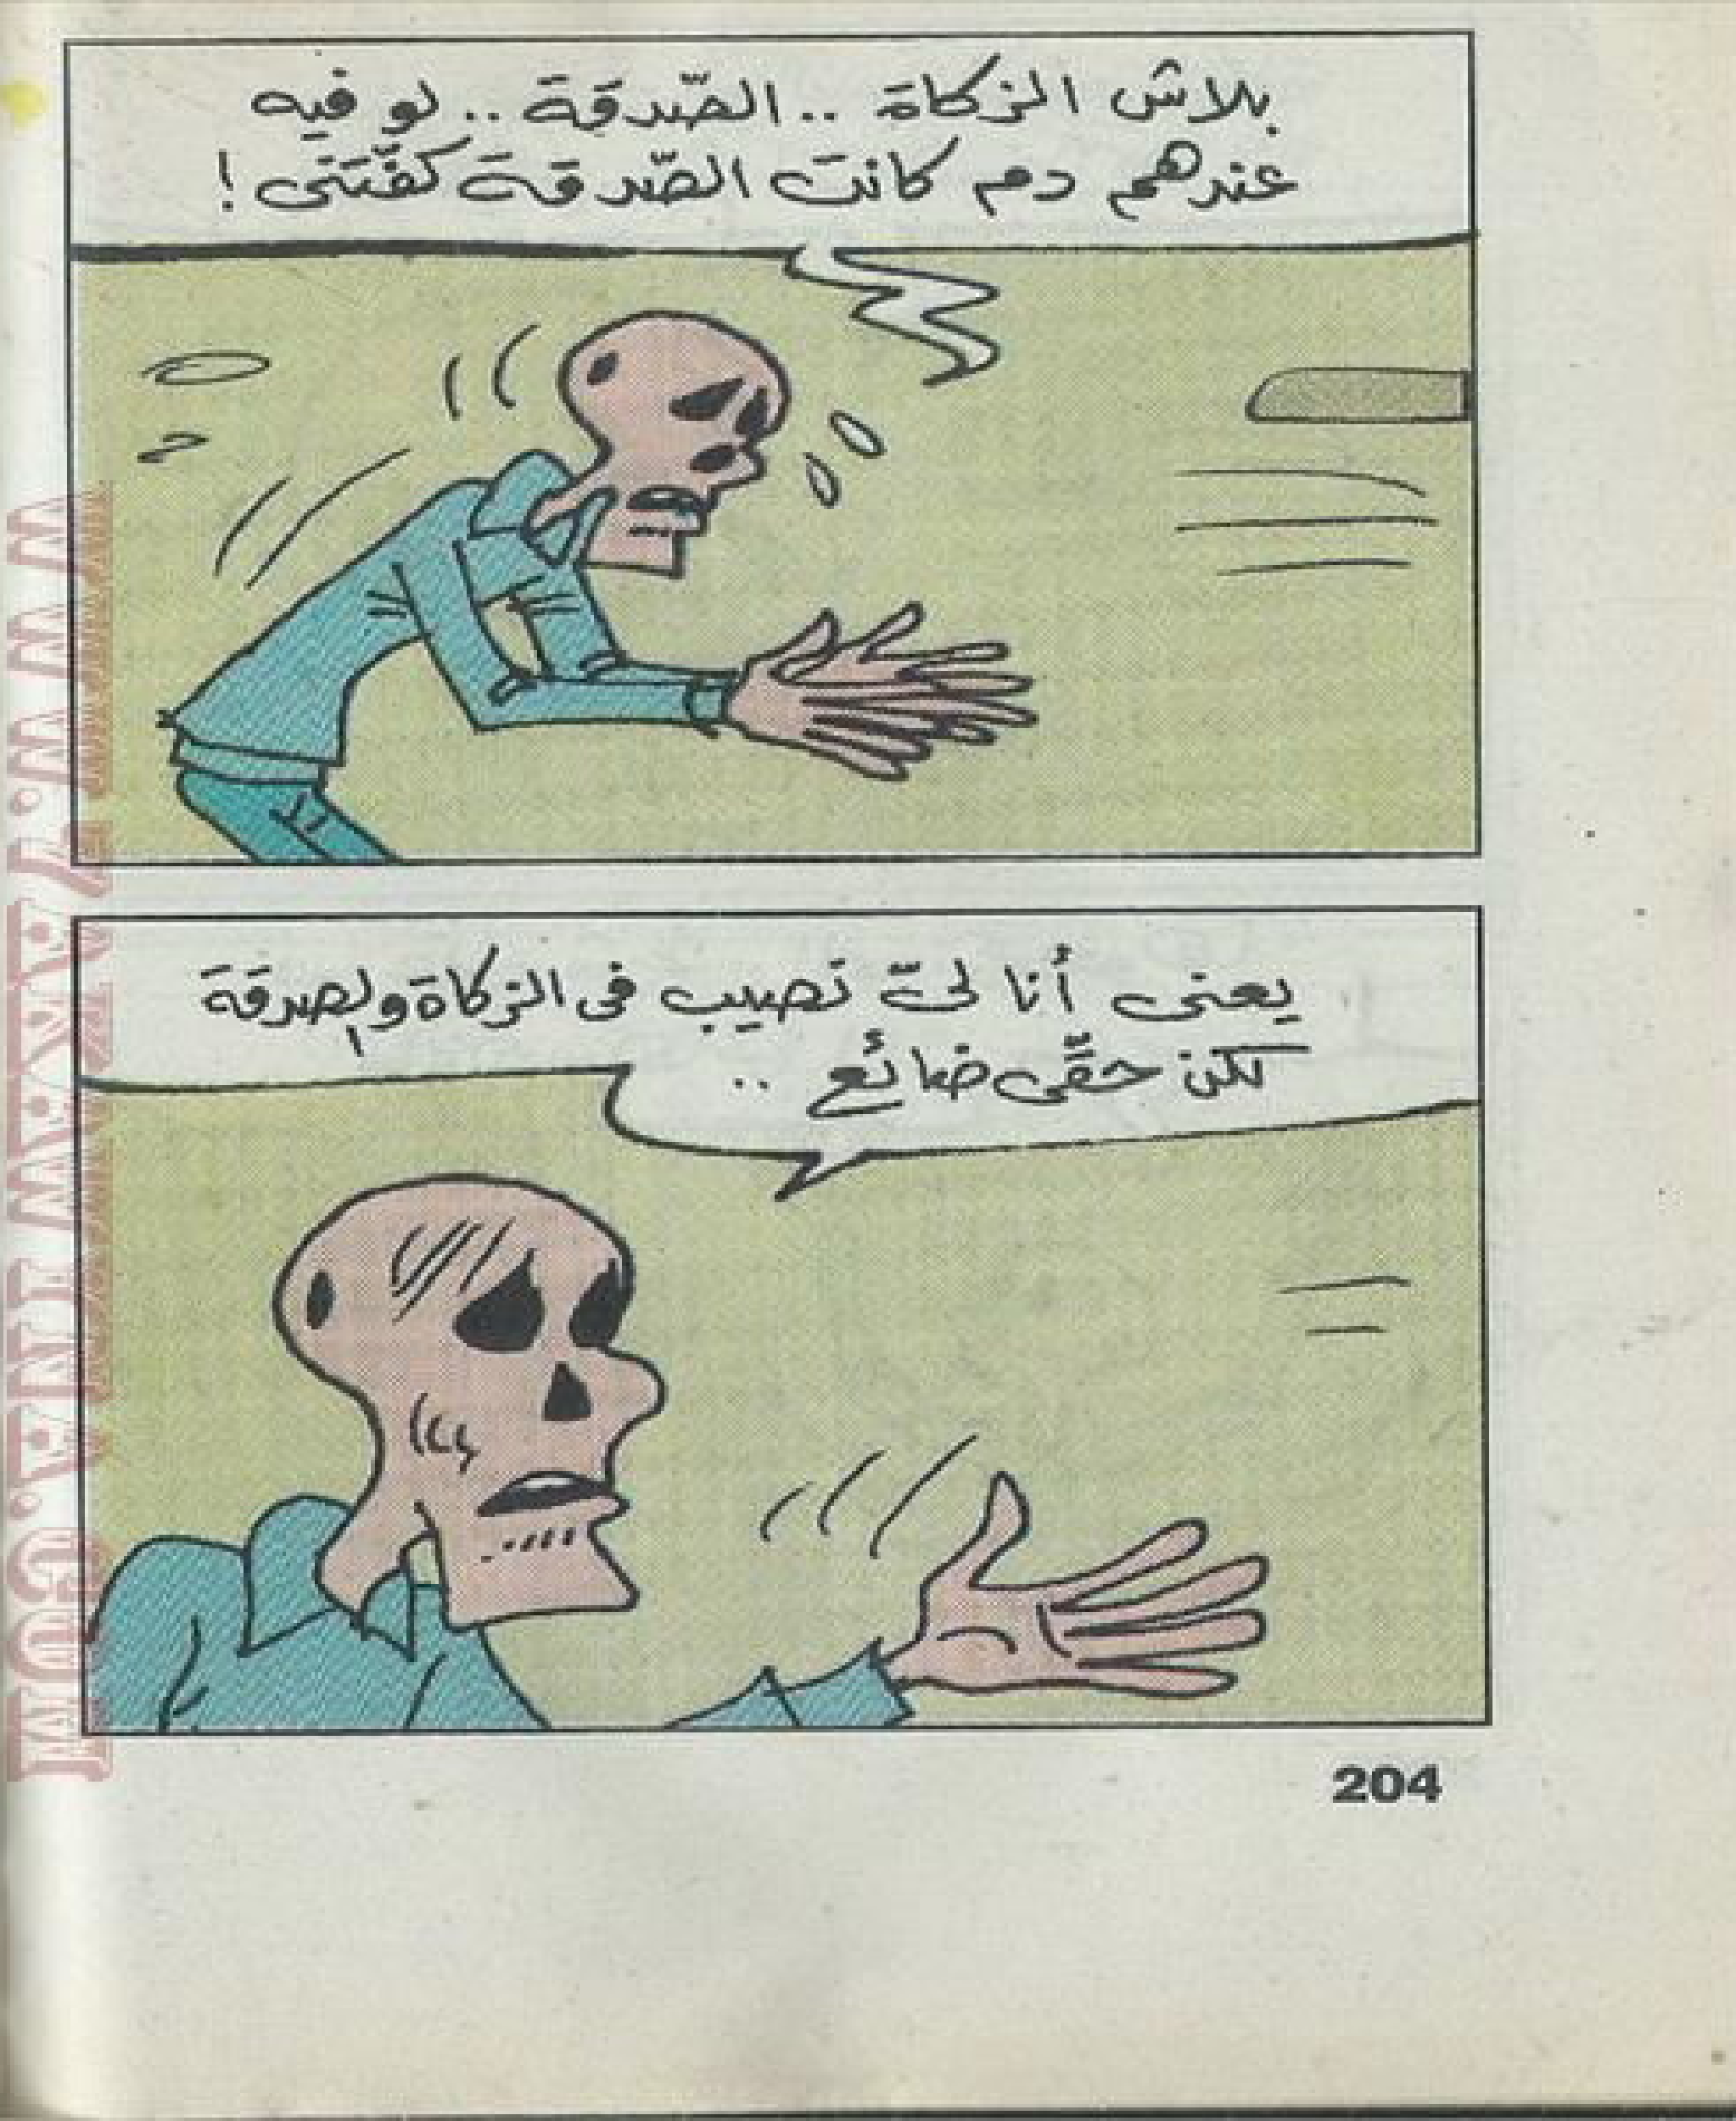 بلاش الزكاة .. الصّدقة .. لو فيه
عندهم دم كانت الصّدقة كفّتنى !
يعنى أنا لىّ نصيب فى الزكاة والصدقة
لكن حقّى ضائع ..
204